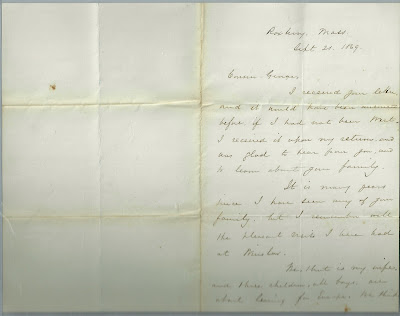 Roxbury, Mass
Sept 21, 1869.
Cousin George,
I received your letter
and it would have been answered
before if I had not been West.
I received it upon my return and
was glad to hear from you, and
to learn about your family.
It is many years
since I have seen any of your
family, but I remember well
the pleasant visits I have had
at
that is my wife
and three children, all boys, are
about leaving for Europe. We think